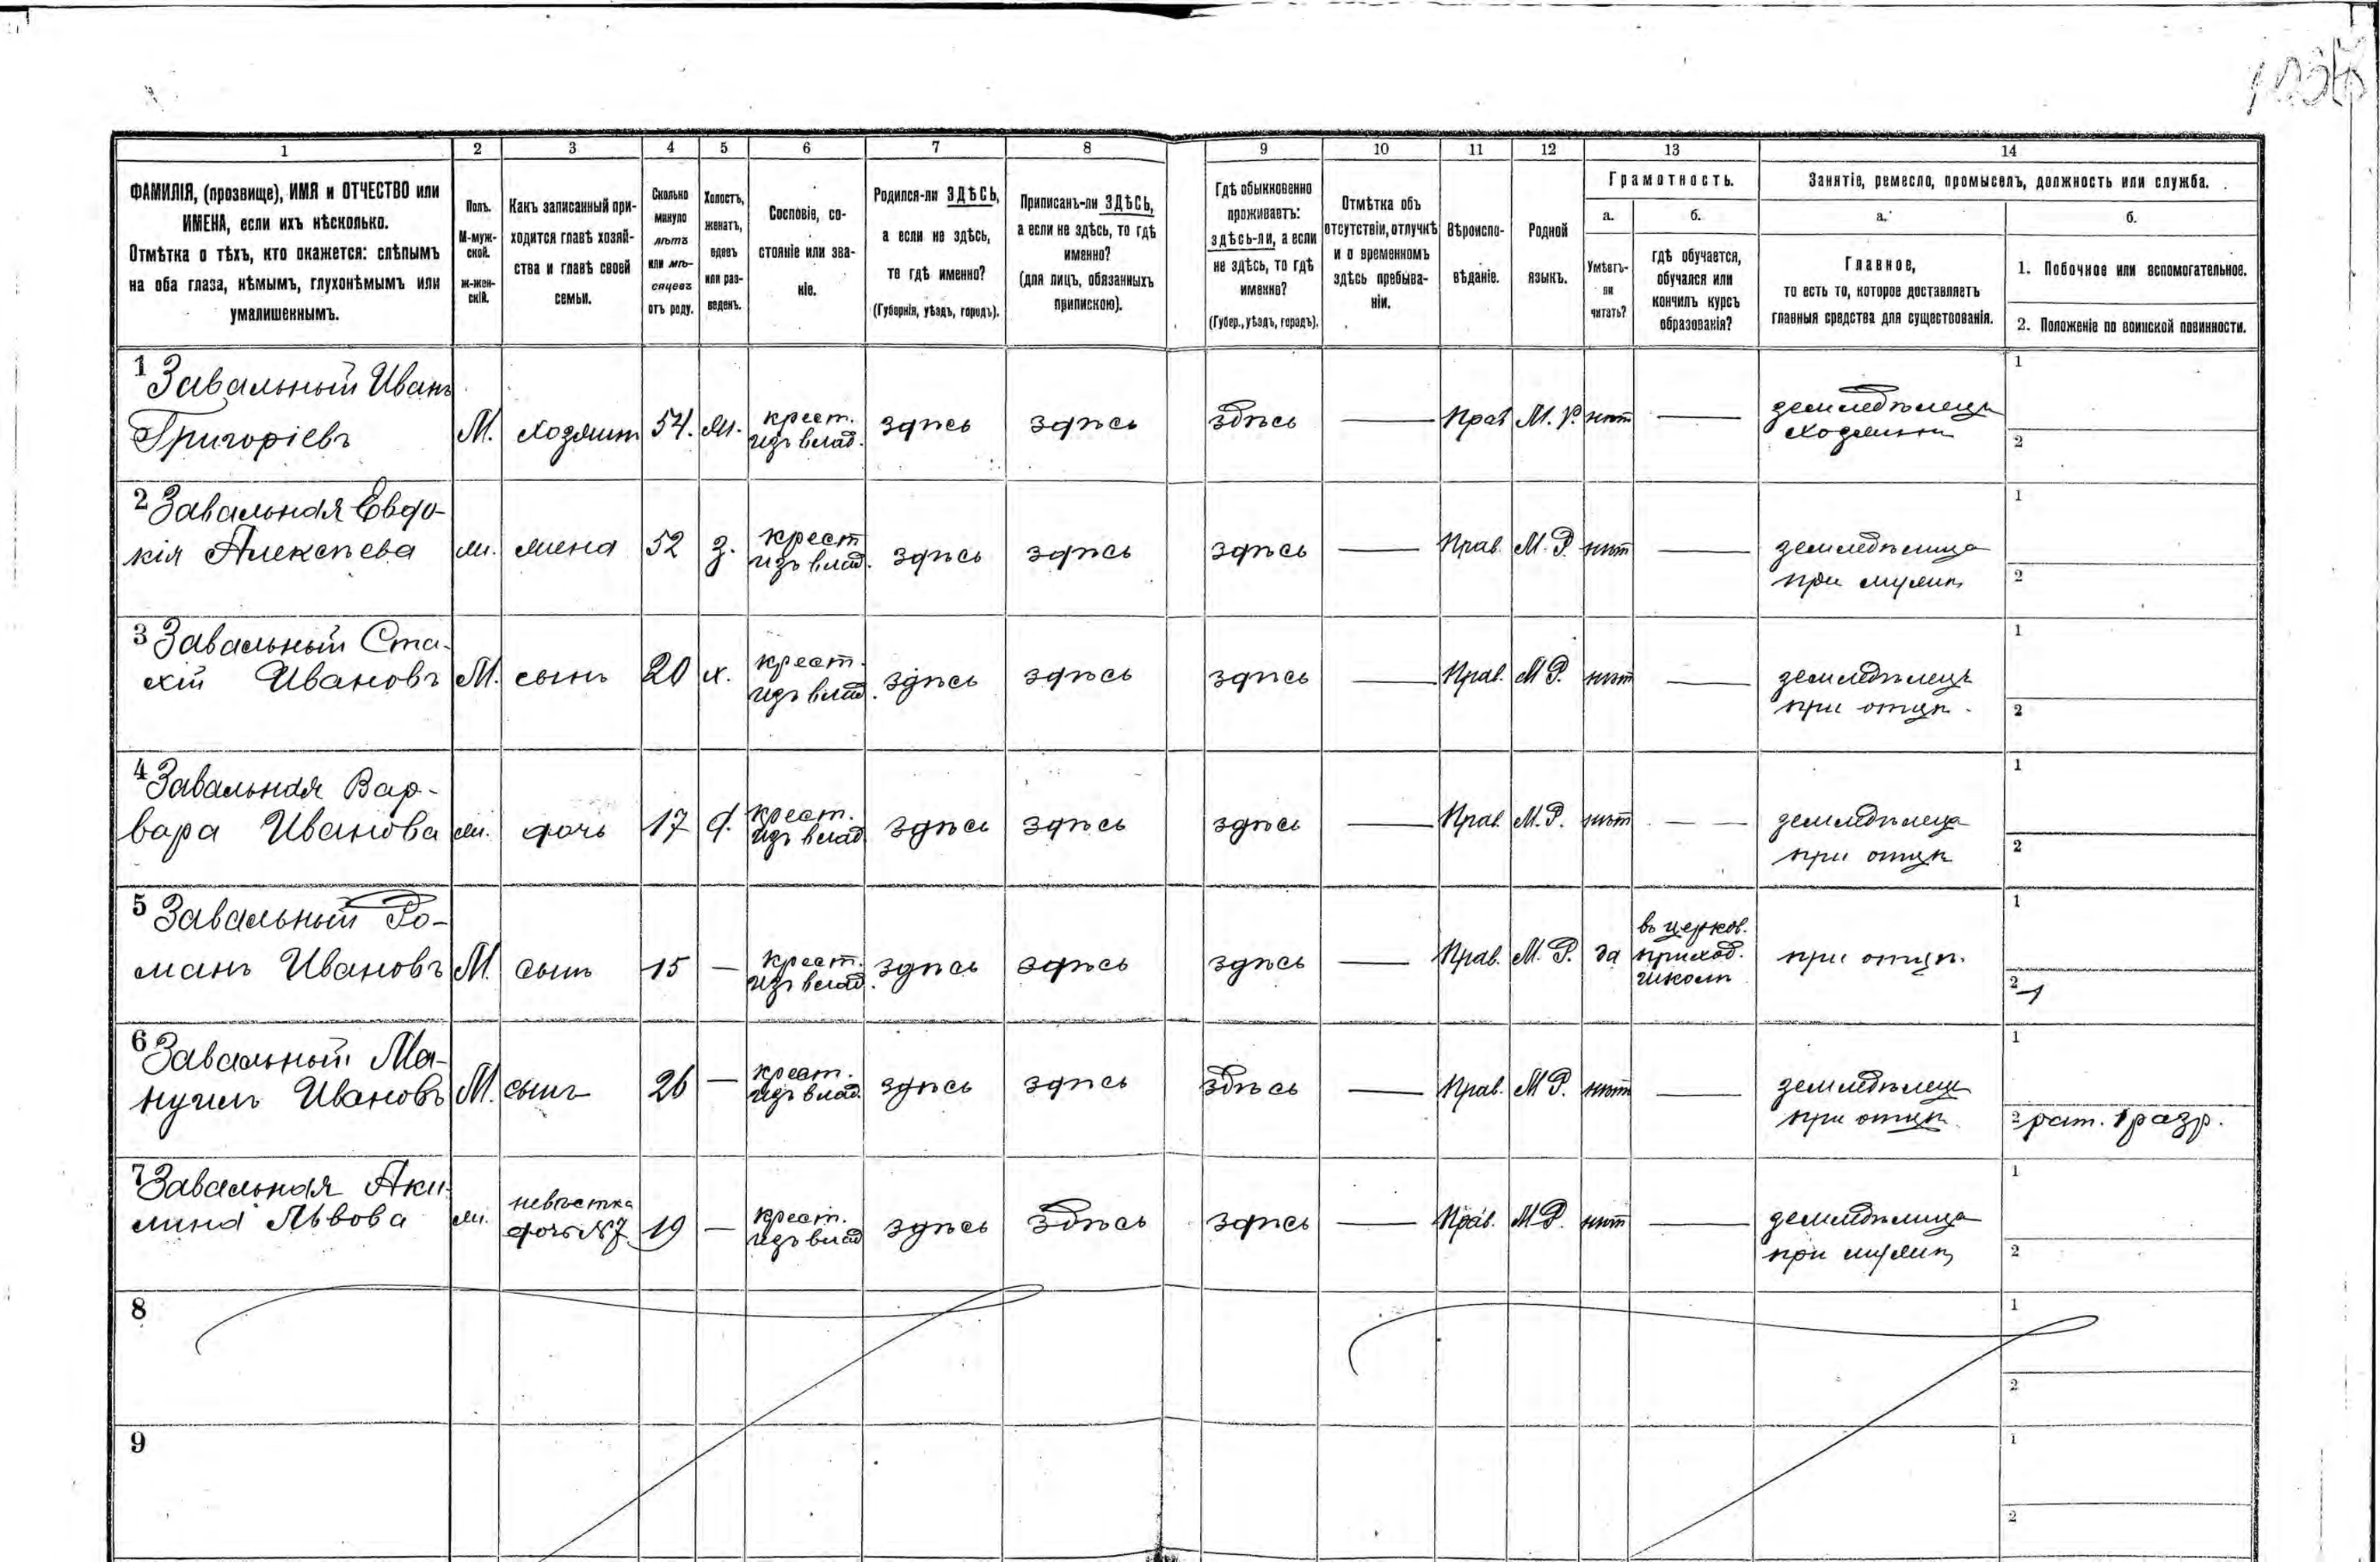 1 2 3 4 5 6 7 8 9 10 11 12 13 14
ФАМИЛІЯ, (прозвище), ИМЯ и ОТЧЕСТВО или
ИМЕНА, если ихъ нѣсколько.
Отмѣтка о тѣхъ, кто окажется: слѣпымъ
на оба глаза, нѣмымъ, глухонѣмымъ или
умалишеннымъ.
Полъ.
М-муж-
ской.
Ж-жен-
скій.
Какъ записанный при-
ходится главѣ хозяй-
ства и главѣ своей
семьи.
Сколько
минуло
лѣтъ
или мѣ-
сяцевъ
отъ роду.
Холостъ,
женатъ,
вдовъ
или раз-
веденъ.
Сословіе, со-
стояніе или зва-
ніе.
Родился-ли ЗДѢСЬ,
а если не здѣсь,
то гдѣ именно?
(Губернія, уѣздъ, городъ).
Приписанъ-ли ЗДѢСЬ,
а если не здѣсь, то гдѣ
именно?
(для лицъ, обязанныхъ
припискою).
Гдѣ обыкновенно
проживаетъ:
здѣсь-ли, а если
не здѣсь, то гдѣ
именно?
(Губер., уѣздъ, городъ).
Отмѣтка объ
отсутствіи, отлучкѣ
и о временномъ
здѣсь пребыва-
ніи.
Вѣроиспо-
вѣданіе.
Родной
языкъ.
Грамотность.
а.
Умѣетъ-
ли
читать?
б.
гдѣ обучается,
обучался или
кончилъ курсъ
образованія?
Занятіе, ремесло, промыселъ, должность или служба.
а.
Главное,
то есть то, которое доставляетъ
главныя средства для существованія.
б.
1. Побочное или вспомогательное.
2. Положеніе по воинской повинности.
1 Завальный Иванъ
Григоріевъ
М. хозяинъ 54. ж. крест.
изъ влад.
здѣсь здѣсь здѣсь — Прав М. Р. нѣт —
земледѣлецъ
хозяинъ
1
2
2 Завальная Евдо-
кія Алексѣева
ж. жена 52 з. крест
изъ влад.
здѣсь здѣсь здѣсь — Прав. М. Р. нѣт —
земледѣлица
при мужѣ
1
2
3 Завальный Ста-
хій Ивановъ
М. сынъ 20 х. крест.
изъ влад.
здѣсь здѣсь здѣсь — Прав. М Р. нѣт —
земледѣлецъ
при отцѣ.
1
2
4 Завальная Вар-
вара Иванова
ж. дочь 17 д. крест.
изъ влад.
здѣсь здѣсь здѣсь — Прав. М. Р. нѣт — —
земледѣлица
при отцѣ
1
2
5 Завальный Ро-
манъ Ивановъ
М. сынъ 15 — крест.
изъ влад.
здѣсь здѣсь здѣсь — Прав. М. Р. да
въ церков.
приход.
школѣ
при отцѣ.
1
2
6 Завальный Ма-
нуилъ Ивановъ
М. сынъ 26 — крест.
изъ влад.
здѣсь здѣсь здѣсь — Прав. М Р. нѣт —
земледѣлецъ
при отцѣ
1
2 рат. 1 разр.
7 Завальная Аки-
лина Львова
ж. невѣстка
дочь №7
19 — крест.
изъ влад
здѣсь здѣсь здѣсь — Прав. М Р. нѣт —
земледѣлица
при мужѣ
1
2
8
1
2
9
1
2